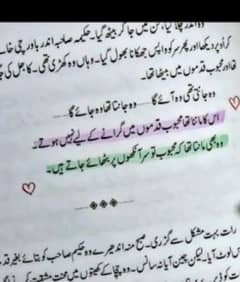 وہ اندر چلا گیا، سن میں جا کر بیٹھ گیا۔ حکیمہ صاحبہ اندر باورچی خانے
کر اوپر دیکھا اور پھر سر کو واپس جھکانا بھول گیا۔ وہاں وہ کھڑی تھی۔ کاجل کی
تھا اور محبوب قدموں میں بیٹھا تھا۔
وہ جانتی تھی وہ آئے گا ____ وہ جانتا تھا وہ جائے گا ____
اس کا ماننا تھا محبوب قدموں میں گرانے کے لیے نہیں ہوتے۔
وہ بھی مانتا تھا کہ محبوب تو سر آنکھوں پر بٹھائے جاتے ہیں۔
رات بہت مشکل سے گزری۔ صبح منہ اندھیرے وہ حکیم صاحب کو بتائے بغیر
لوٹ آیا۔ لیکن چین آیا نہ سانس۔ وہ چچا کے کھیتوں میں محنت مشقت